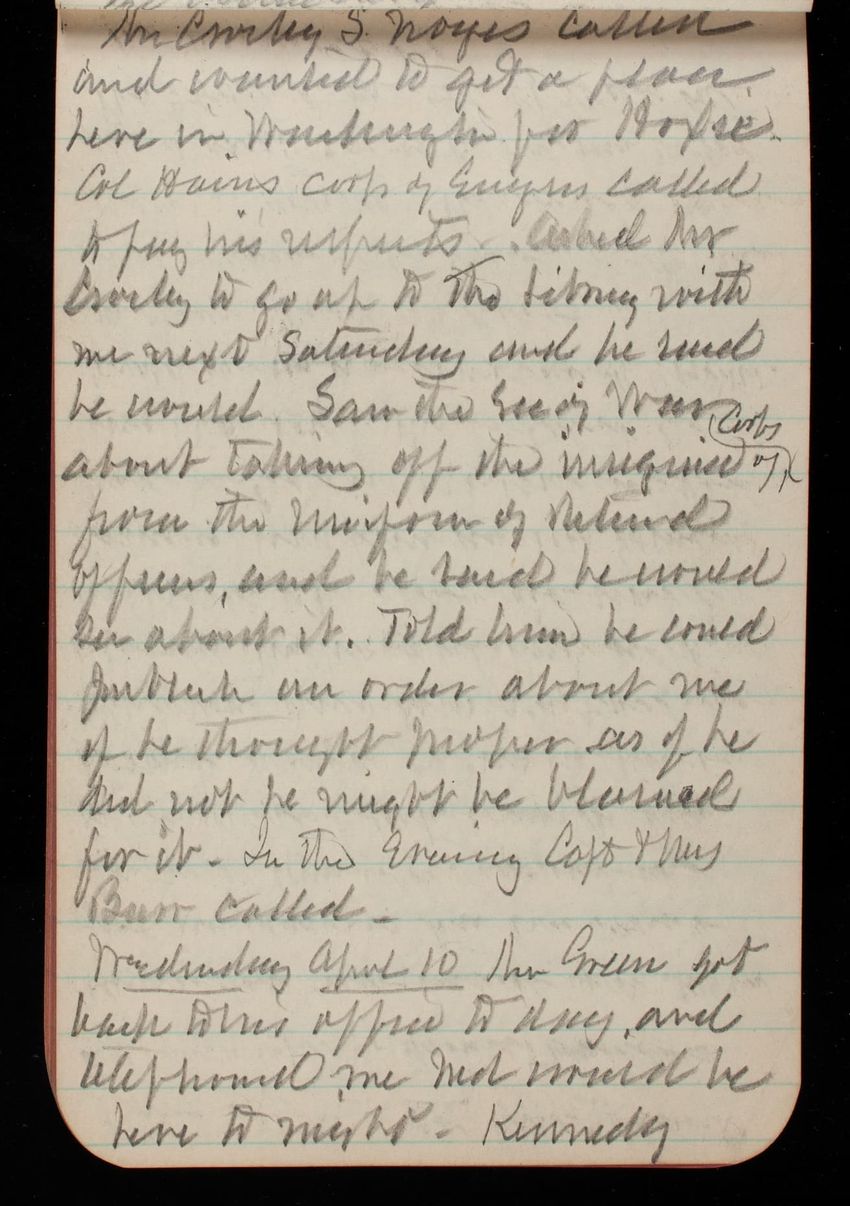 Mr Crosby S. Noyes called
and wanted to get a place
here in Washington for Hoxie.
Col Hains Corps of Engrs called
to pay his respects. Asked Mr
Crosby to go up to the Library with
me next Saturday and he said
he would. Saw the Sec of War
about taking off the insignia of Corps
from the uniform of Retired
officers, and he said he would
see about it. Told him he could
publish an order about me
if he thought proper as if he
did not he might be blamed
for it - In the Evening Capt & Mrs
Burr called -
Wednesday April 10 Mr Green got
back to his office to day, and
telephoned me Ned would be
here to night - Kennedy